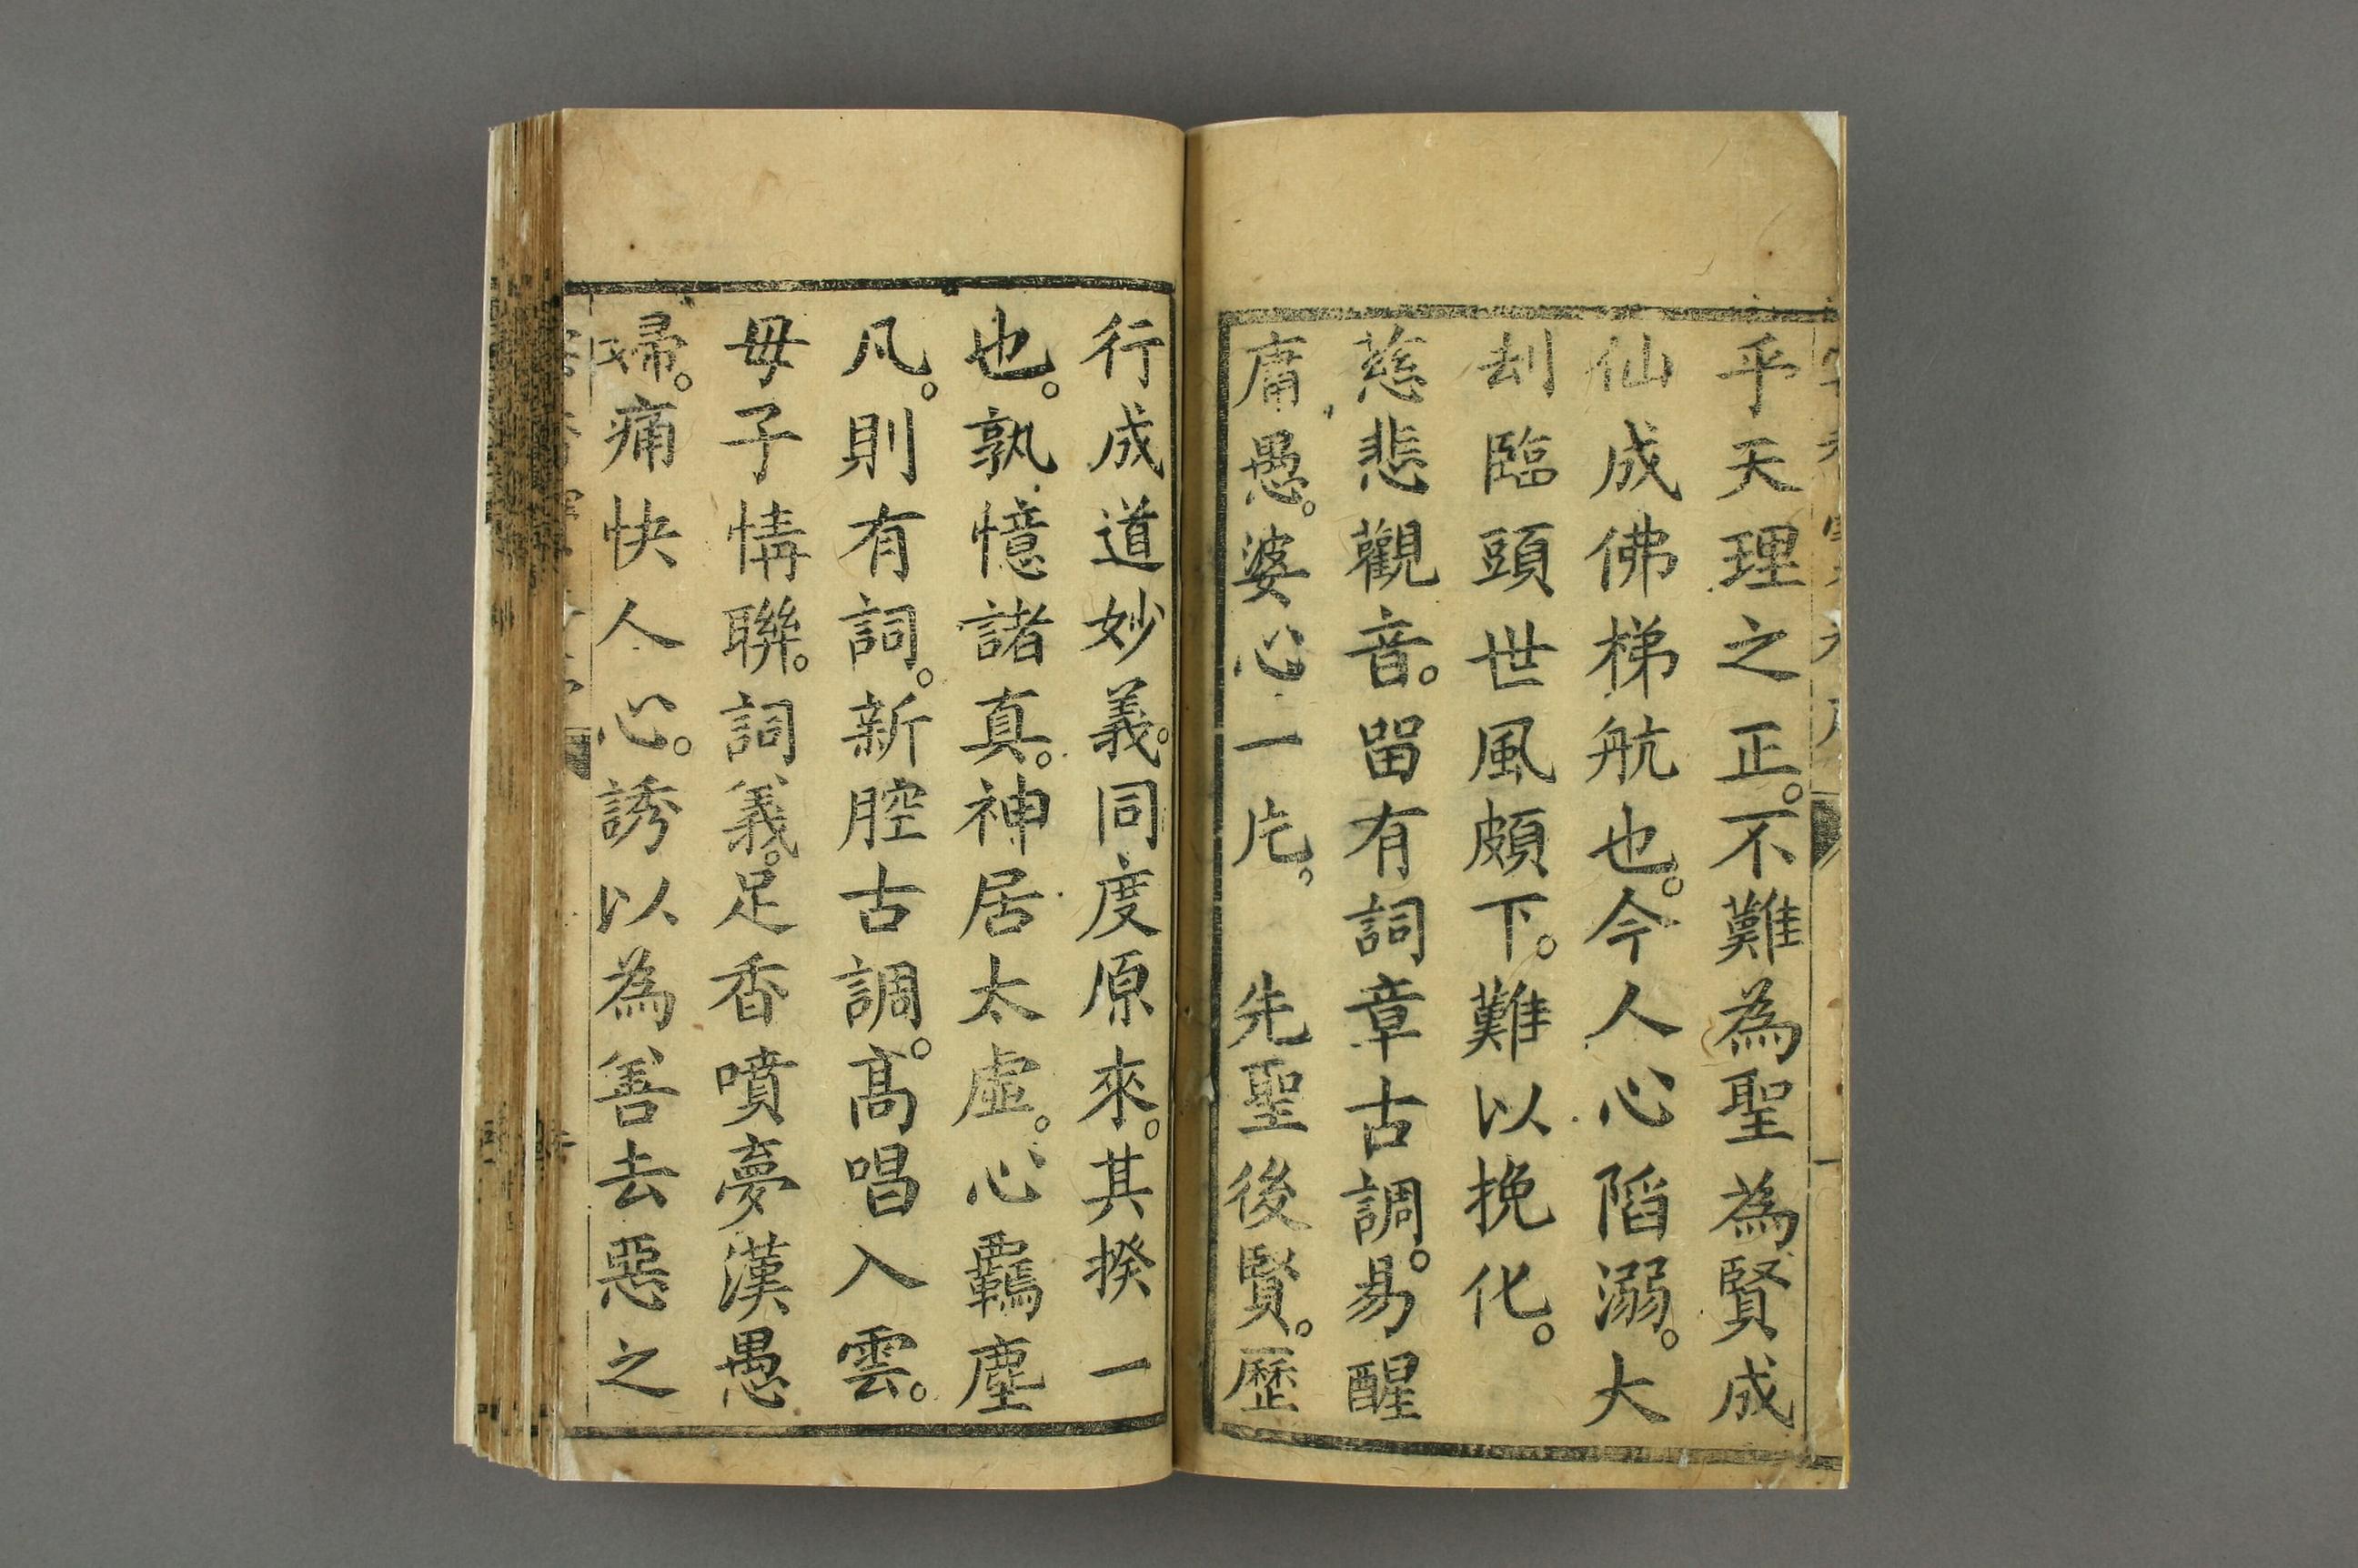 乎天理之正。不難為聖為賢成
仙成佛梯航也。今人心陷溺。大
刼臨頭世風頗下。難以挽化。
慈悲觀音。畱有詞章古調。易醒
庸愚。婆心一片。 先聖後賢。歷
行成道妙義。同度原來。其揆一
也。孰憶諸真。神居太虛。心羈塵
凡。則有詞。新腔古調。高唱入雲。
毋子情聯。詞義。足香噴夢漢愚
婦。痛快人心。誘以為善去惡之